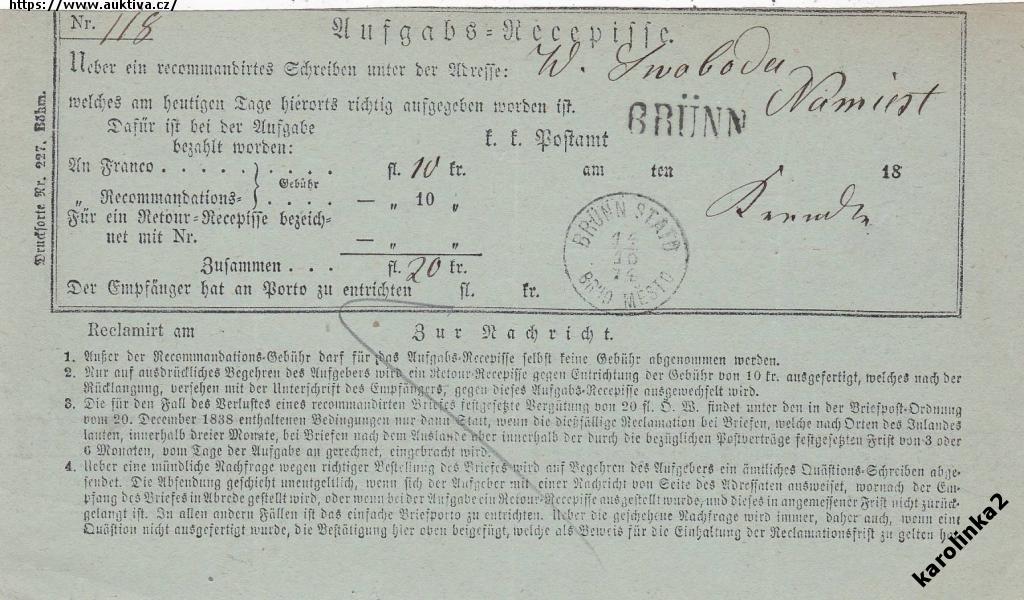 https://www.auktiva.cz/
Nr. 118
Aufgabs-Recepisse.
Ueber ein recommandirtes Schreiben unter der Adresse: W. Swoboda
Námiest
welches am heutigen Tage hierorts richtig aufgegeben worden ist.
Dafür ist bei der Aufgabe
bezahlt worden:
k. k. Postamt BRÜNN
An Franco . . . . . . . . . fl. 10 kr. am ten 18
Gebühr
„ Recommandations- . . . . — „ 10 „
Für ein Retour-Recepisse bezeich-
net mit Nr. — „ „
Zusammen . . . fl. 20 kr.
Der Empfänger hat an Porto zu entrichten fl. kr.
BRÜNN STADT
BRNO MĚSTO
Drucksorte Nr. 227. Böhm.
Reclamirt am
Zur Nachricht.
1. Außer der Recommandations-Gebühr darf für das Aufgabs-Recepisse selbst keine Gebühr abgenommen werden.
2. Nur auf ausdrückliches Begehren des Aufgebers wird ein Retour-Recepisse gegen Entrichtung der Gebühr von 10 kr. ausgefertigt, welches nach der
Rücklangung, versehen mit der Unterschrift des Empfängers, gegen dieses Aufgabs-Recepisse ausgewechselt wird.
3. Die für den Fall des Verlustes eines recommandirten Briefes festgesetzte Vergütung von 20 fl. Ö. W. findet unter den in der Briefpost-Ordnung
vom 20. December 1838 enthaltenen Bedingungen nur dann Statt, wenn die dießfällige Reclamation bei Briefen, welche nach Orten des Inlandes
lauten, innerhalb dreier Monate, bei Briefen nach dem Auslande aber innerhalb der durch die bezüglichen Postverträge festgesetzten Frist von 3 oder
6 Monaten, vom Tage der Aufgabe an gerechnet, eingebracht wird.
4. Ueber eine mündliche Nachfrage wegen richtiger Bestellung des Briefes wird auf Begehren des Aufgebers ein ämtliches Quästions-Schreiben abge-
sendet. Die Absendung geschieht unentgeltlich, wenn sich der Aufgeber mit einer Nachricht von Seite des Adressaten ausweiset, wornach der Em-
pfang des Briefes in Abrede gestellt wird, oder wenn bei der Aufgabe ein Retour-Recepisse ausgestellt wurde, und dieses in angemessener Frist nicht zurück-
gelangt ist. In allen andern Fällen ist das einfache Briefporto zu entrichten. Ueber die geschehene Nachfrage wird immer, daher auch, wenn eine
Quästion nicht ausgefertigt wurde, die Bestätigung hier oben beigefügt, welche als Beweis für die Einhaltung der Reclamationsfrist zu gelten hat.
karolinka2